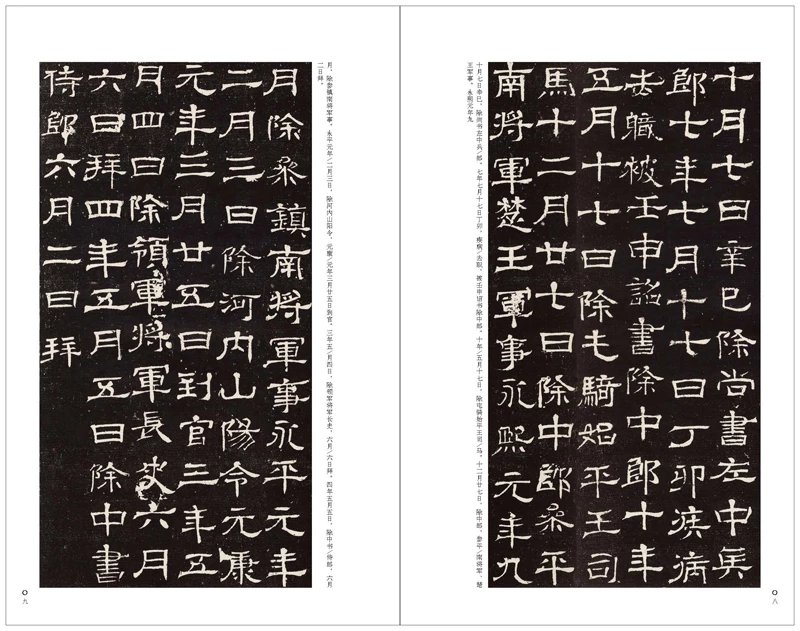 十月七日辛巳除尚書左中兵
郎七年七月十七日丁卯疾病
去職被壬申詔書除中郎十年
五月十七日除屯騎始平王司
馬十二月廿七日除中郎叅平
南將軍楚王軍事永熙元年九
十月七日辛巳，除尚书左中兵/郎。七年七月十七日丁卯，疾病/去职，被壬申诏书除中郎。十年/五月十七日，除屯骑始平王司/马。十二月廿七日，除中郎，参平/南将军、楚
王军事。永熙元年九
八
月，除参镇南将军事。永平元年/二月三日，除河内山阳令。元康/元年三月廿五日到官。三年五/月四日，除领军将军长史。六月/六日拜。四年五月五日，除中书/侍郎。六月
二日拜。
月除叅鎮南將軍事永平元年
二月三日除河内山陽令元康
元年三月廿五日到官三年五
月四日除領軍將軍長史六月
六日拜四年五月五日除中書
侍郎六月二日拜
九